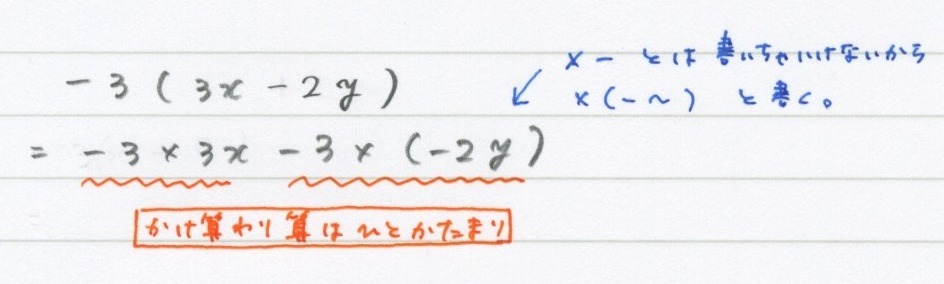 -3(3x-2y)
×ーとは書いちゃいけないから
×(-~)と書く。
= -3×3x -3×(-2y)
かけ算わり算はひとかたまり